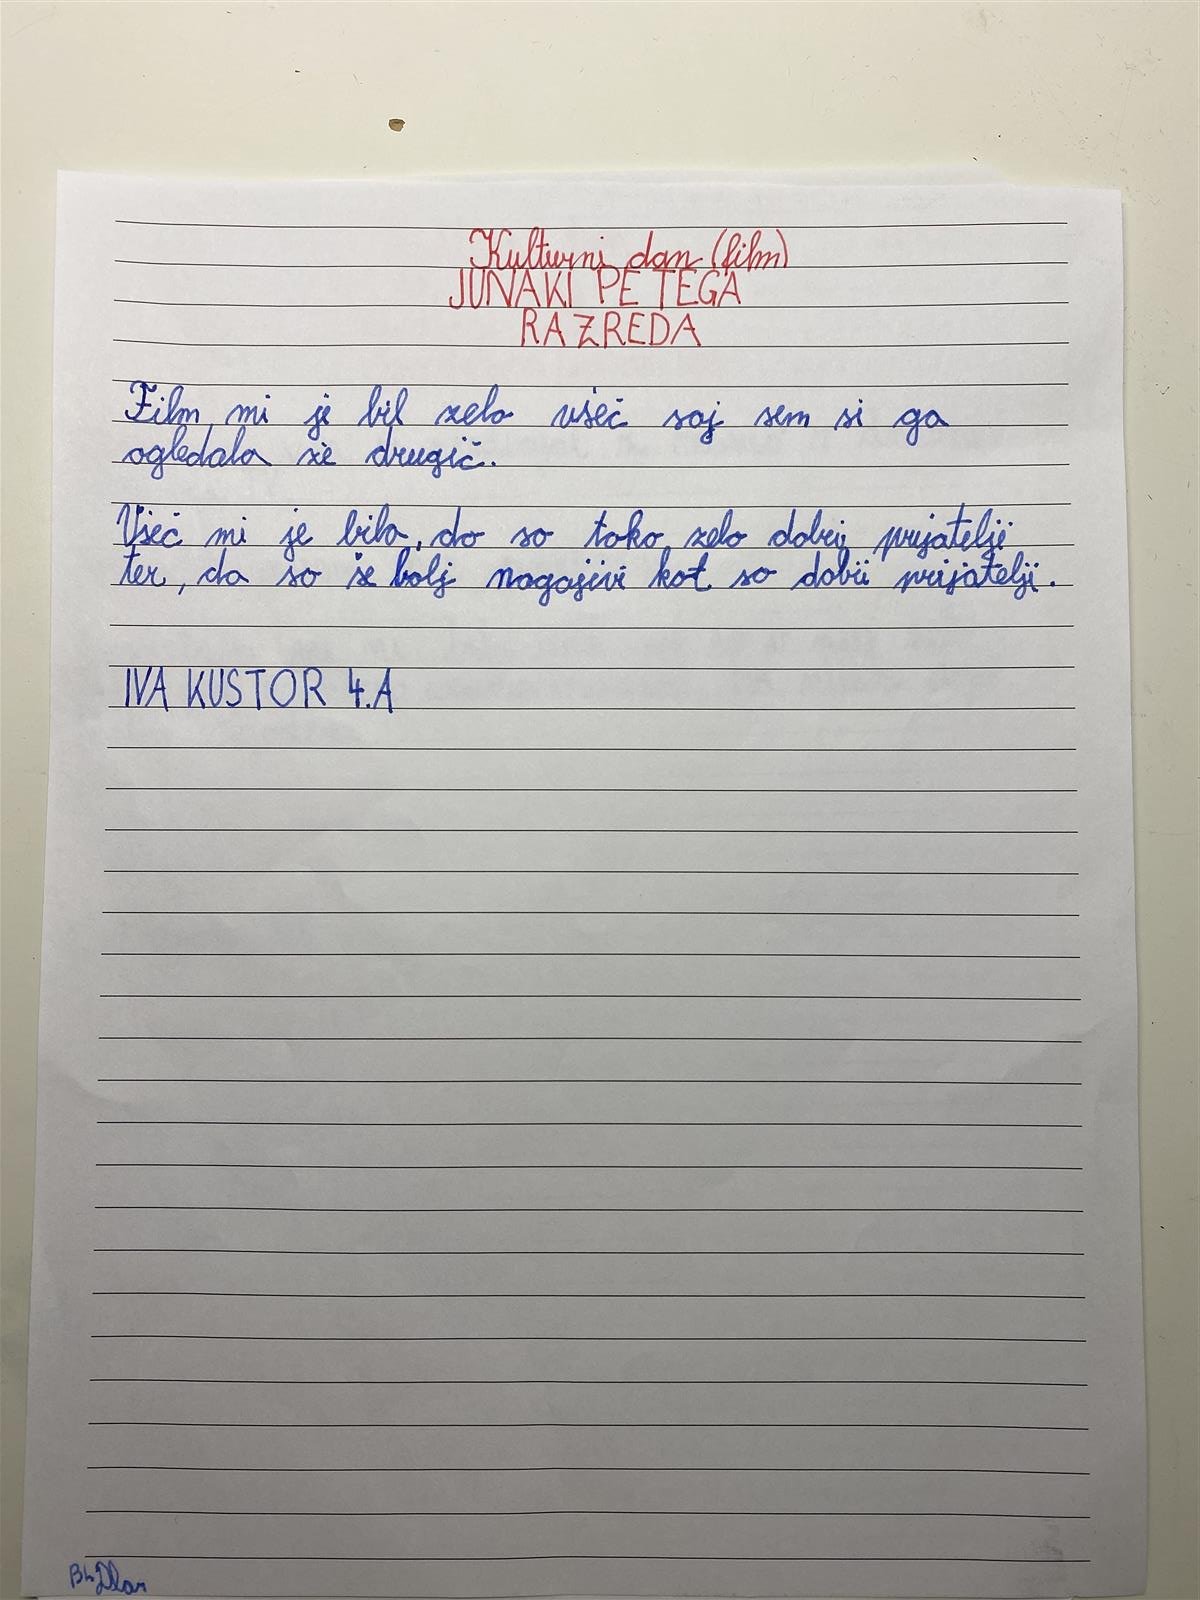 Kulturni dan (film)
JUNAKI PE TEGA
RAZREDA
Film mi je bil zelo všeč saj sem si ga
ogledala že drugič.
Všeč mi je bilo, da so tako zelo dobri prijatelji
ter, da so še bolj nagajivi kot so dobri prijatelji.
IVA KUSTOR 4.A